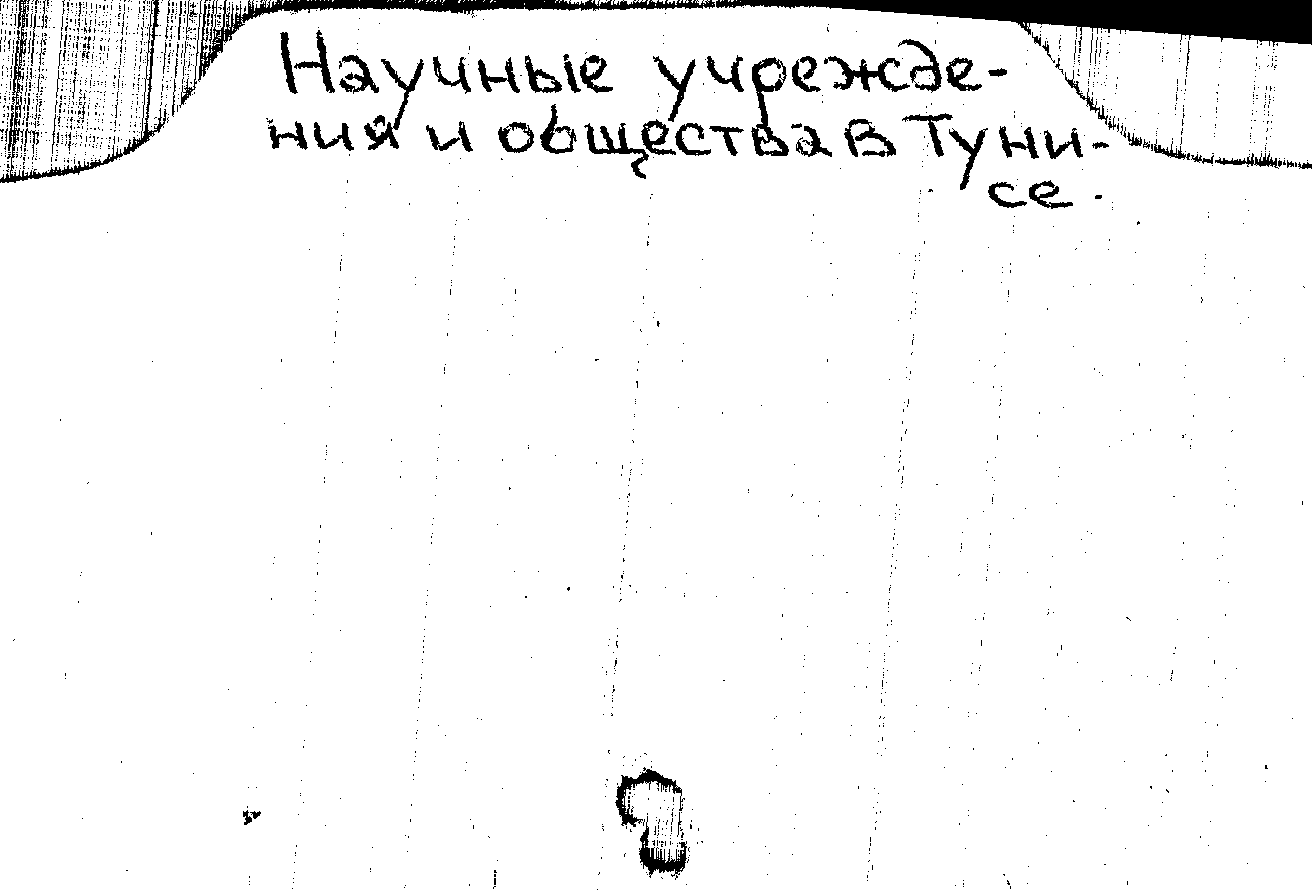 Научные учрежде-
ния и общества в Туни-
се.